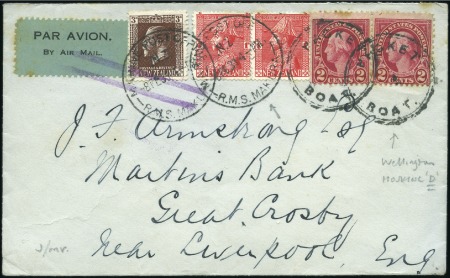 PAR AVION.
BY AIR MAIL.
NEW ZEALAND
R.M.S. MAK
BOAT.
BOAT.
J. F. Armstrong Esq
Martins Bank
Great Crosby
Near Liverpool
Eng.
Wellington
"D"